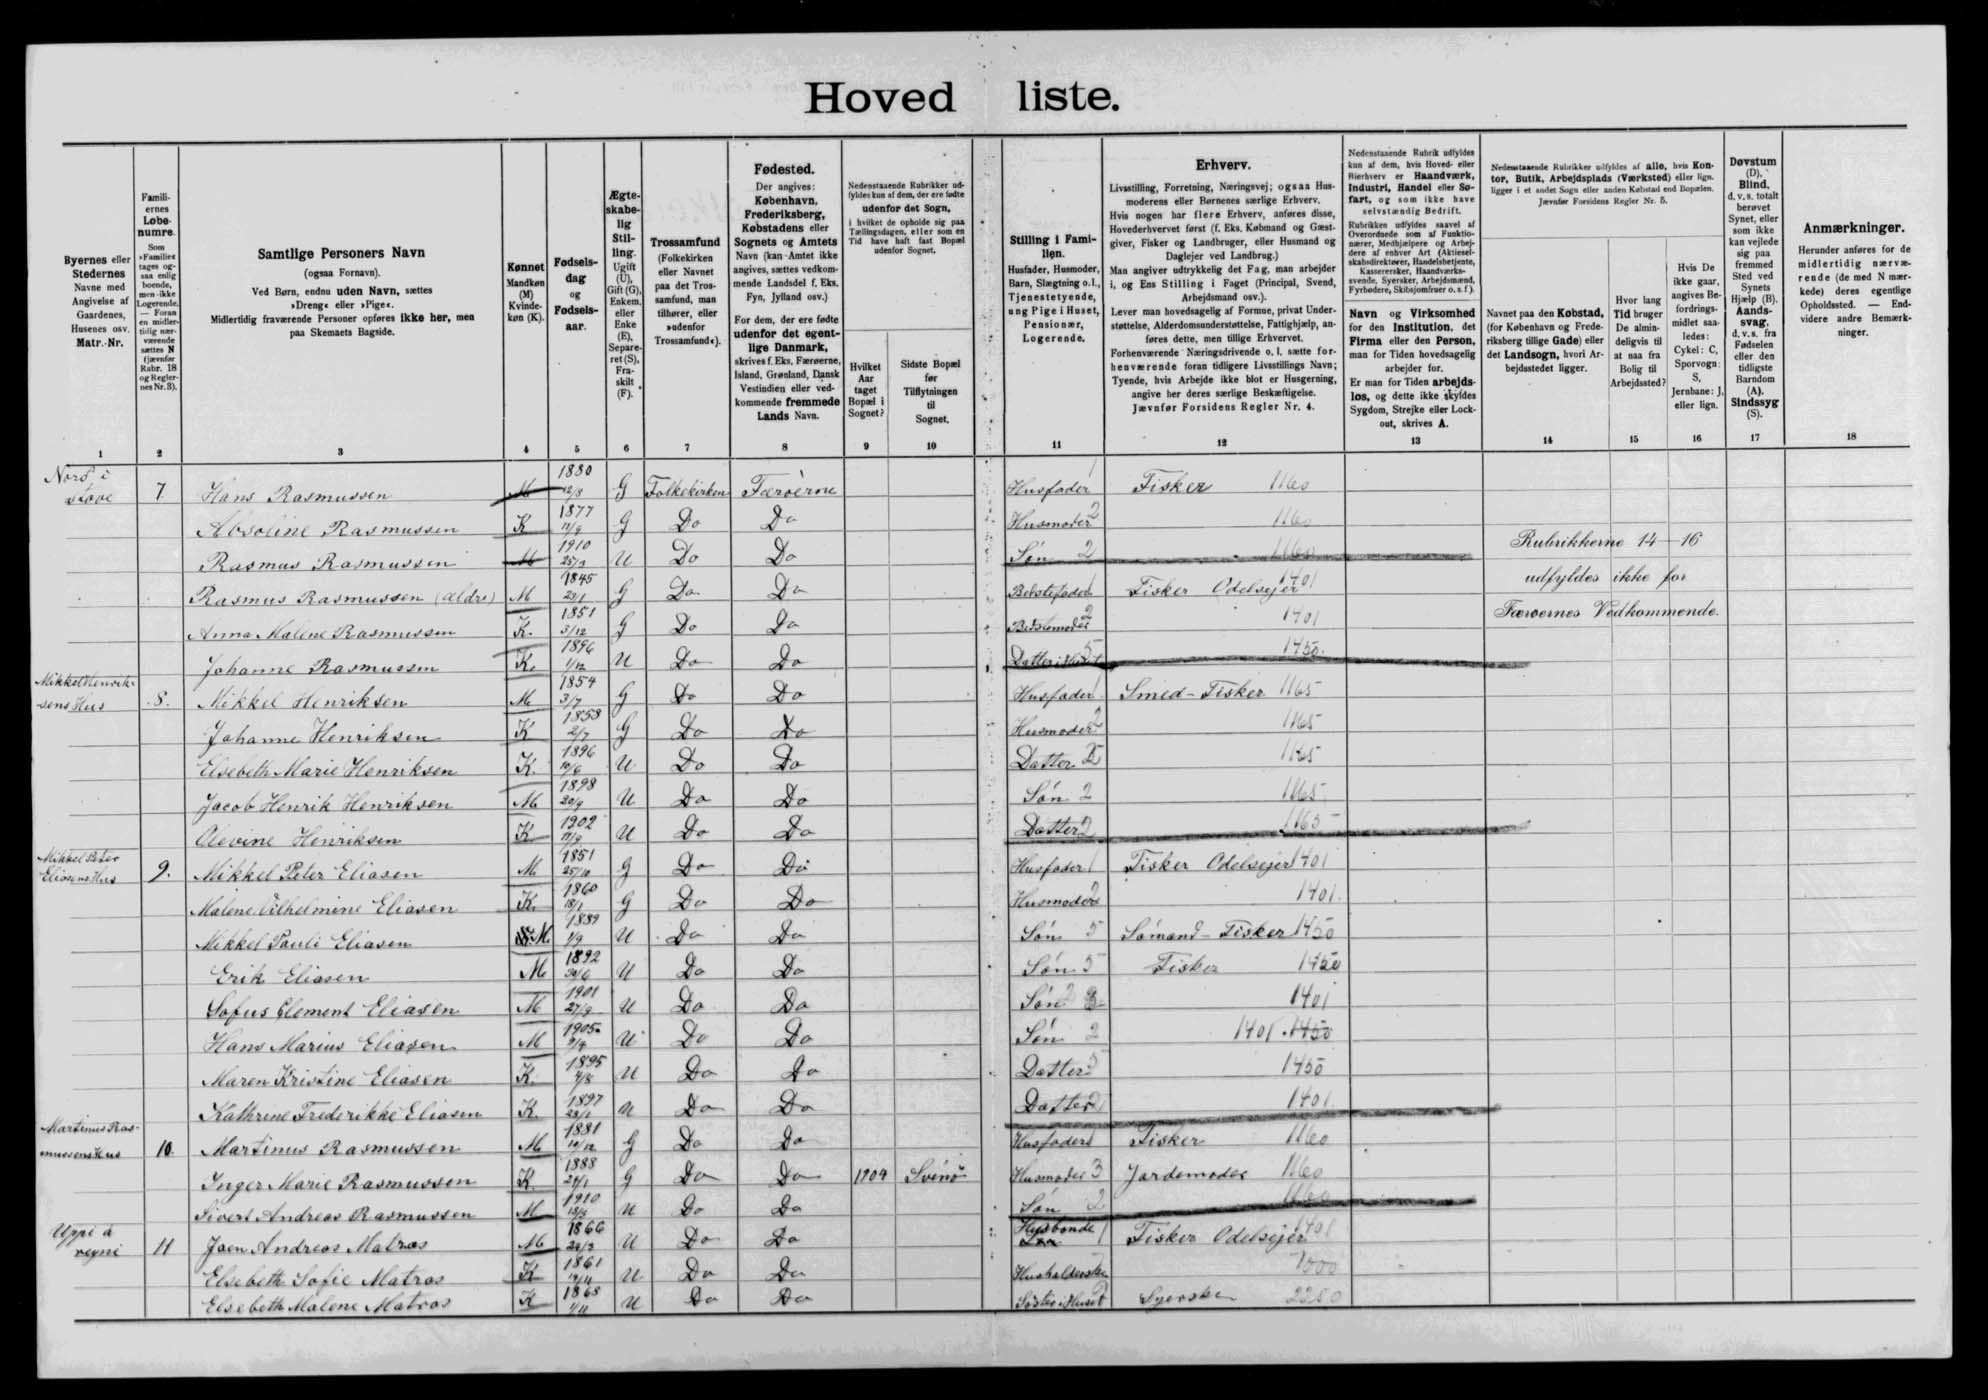 Hoved liste.
Byernes eller
Stedernes
Navne med
Angivelse af
Gaardenes,
Husenes osv.
Matr.-Nr.
Famili-
ernes
Løbe-
numre.
Som
»Familie«
tages og-
saa enlig
boende,
men ikke
Logerende.
— Foran
en midler-
tidig nær-
værende
sættes N
(jævnfør
Rubr. 18
og Regler-
nes Nr. 3).
Samtlige Personers Navn
(ogsaa Fornavn).
Ved Børn, endnu uden Navn, sættes
»Dreng« eller »Pige«.
Midlertidig fraværende Personer opføres ikke her, men
paa Skemaets Bagside.
Kønnet
Mandkøn
(M)
Kvinde-
køn (K).
Fødsels-
dag
og
Fødsels-
aar.
Ægte-
skabe-
lig
Stil-
ling.
Ugift
(U),
Gift (G),
Enkem.
eller
Enke
(E),
Separe-
ret (S),
Fra-
skilt
(F).
Trossamfund
(Folkekirken
eller Navnet
paa det Tros-
samfund, man
tilhører, eller
»udenfor
Trossamfund«).
Fødested.
Der angives:
København,
Frederiksberg,
Købstadens eller
Sognets og Amtets
Navn (kan Amtet ikke
angives, sættes vedkom-
mende Landsdel f. Eks.
Fyn, Jylland osv.)
For dem, der ere fødte
udenfor det egent-
lige Danmark,
skrives f. Eks. Færøerne,
Island, Grønland, Dansk
Vestindien eller ved-
kommende fremmede
Lands Navn.
Nedenstaaende Rubrikker ud-
fyldes kun af dem, der ere fødte
udenfor det Sogn,
i hvilket de opholde sig paa
Tællingsdagen, eller som en
Tid have haft fast Bopæl
udenfor Sognet.
Hvilket
Aar
taget
Bopæl i
Sognet?
Sidste Bopæl
før
Tilflytningen
til
Sognet.
Stilling i Fami-
lien.
Husfader, Husmoder,
Barn, Slægtning o. l.,
Tjenestetyende,
ung Pige i Huset,
Pensionær,
Logerende.
Erhverv.
Livsstilling, Forretning, Næringsvej; ogsaa Hus-
moderens eller Børnenes særlige Erhverv.
Hvis nogen har flere Erhverv, anføres disse,
Hovederhvervet først (f. Eks. Købmand og Gæst-
giver, Fisker og Landbruger, eller Husmand og
Daglejer ved Landbrug.)
Man angiver udtrykkelig det Fag, man arbejder
i, og Ens Stilling i Faget (Principal, Svend,
Arbejdsmand osv.).
Lever man hovedsagelig af Formue, privat Under-
støttelse, Alderdomsunderstøttelse, Fattighjælp, an-
føres dette, men tillige Erhvervet.
Forhenværende Næringsdrivende o. l. sætte for-
henværende foran tidligere Livsstillings Navn;
Tyende, hvis Arbejde ikke blot er Husgerning,
angive her deres særlige Beskæftigelse.
Jævnfør Forsidens Regler Nr. 4.
Nedenstaaende Rubrik udfyldes
kun af dem, hvis Hoved- eller
Bierhverv er Haandværk,
Industri, Handel eller Sø-
fart, og som ikke have
selvstændig Bedrift.
Rubrikken udfyldes saavel af
Overordnede som af Funktio-
nærer, Medhjælpere og Arbej-
dere af enhver Art (Aktiesel-
skabsdirektører, Handelsbetjente,
Kassererskér, Haandværks-
svende, Syersker, Arbejdsmænd,
Fyrbødere, Skibsjomfruer o. s. f.).
Navn og Virksomhed
for den Institution, det
Firma eller den Person,
man for Tiden hovedsagelig
arbejder for.
Er man for Tiden arbejds-
løs, og dette ikke skyldes
Sygdom, Strejke eller Lock-
out, skrives A.
Nedenstaaende Rubrikker udfyldes af alle, hvis Kon-
tor, Butik, Arbejdsplads (Værksted) eller lign.
ligger i et andet Sogn eller anden Købstad end Bopælen.
Jævnfør Forsidens Regler Nr. 5.
Navnet paa den Købstad,
(for København og Frede-
riksberg tillige Gade) eller
det Landsogn, hvori Ar-
bejdsstedet ligger.
Hvor lang
Tid bruger
De almin-
deligvis til
at naa fra
Bolig til
Arbejdssted?
Hvis De
ikke gaar,
angives Be-
fordrings-
midlet saa-
ledes:
Cykel: C,
Sporvogn:
S,
Jernbane: J,
eller lign.
Døvstum
(D).
Blind,
d. v. s. totalt
berøvet
Synet, eller
som ikke
kan vejlede
sig paa
fremmed
Sted ved
Synets
Hjælp (B).
Aands-
svag,
d. v. s. fra
Fødselen
eller den
tidligste
Barndom
(A).
Sindssyg
(S).
Anmærkninger.
Herunder anføres for de
midlertidig nærvæ-
rende (de med N mær-
kede) deres egentlige
Opholdssted. — End-
videre andre Bemærk-
ninger.
1 2 3 4 5 6 7 8 9 10 11 12 13 14 15 16 17 18
Nord i Stove 7. Hans Rasmussen M 1880 12/8 G Folkekirken Færøerne Husfader 1 Fisker 1160
Absoline Rasmussen K 1877 11/9 G Do Do Husmoder 2 1160
Rasmus Rasmussen M 1910 25/9 U Do Do Søn 2 1160
Rasmus Rasmussen (ældre) M 1845 23/1 G Do Do Bedstefader 1 Fisker Odelsejer 1401
Anna Malene Rasmussen K. 1851 3/12 G Do Do Bedstemoder 2 1401
Johanne Rasmussen K. 1896 1/12 U Do Do Datter i Huset 5 1450.
Rubrikkerne 14–16
udfyldes ikke for
Færøernes Vedkommende.
Mikkel Henrik-
sens Hus 8. Mikkel Henriksen M 1854 3/7 G Do Do Husfader 1 Smed-Fisker 1165
Johanne Henriksen K 1858 2/7 G Do Do Husmoder 2 1165
Elsebeth Marie Henriksen K. 1896 10/6 U Do Do Datter 2 1165
Jacob Henrik Henriksen M 1898 20/9 U Do Do Søn 2 1165
Olevine Henriksen K 1902 11/9 U Do Do Datter 2 1165
Mikkel Peter
Eliasens Hus 9. Mikkel Peter Eliasen M 1851 25/10 G Do Do Husfader 1 Fisker Odelsejer 1401
Malene Vilhelmine Eliasen K. 1860 18/1 G Do Do Husmoder 2 1401.
Mikkel Pauli Eliasen M 1889 1/9 U Do Do Søn 5 Sømand-Fisker 1450
Erik Eliasen M 1892 24/6 U Do Do Søn 5 Fisker 1450
Sofus Clement Eliasen M 1901 27/9 U Do Do Søn 2 1401
Hans Marius Eliasen M 1905 U Do Do Søn 2 1401. 1450
Maren Kristine Eliasen K. 1895 4/8 U Do Do Datter 5 1450
Kathrine Frederikke Eliasen K. 1897 23/1 U Do Do Datter 2 1401.
Martinus Ras-
mussens Hus 10. Martinus Rasmussen M 1881 10/12 G Do Do Husfader 1 Fisker 1160
Inger Marie Rasmussen K. 1888 29/1 G Do Do 1909 Svinø Husmoder 3 Jordemoder 1160
Sivert Andreas Rasmussen M 1910 18/5 U Do Do Søn 2 1160
Uppi á
regni 11 Joen Andreas Matras M 1866 24/3 U Do Do Husbonde 1 Fisker Odelsejer 1401
Elsebeth Sofie Matras K 1861 U Do Do Husholderske 7 1000
Elsebeth Malene Matras K 1868 1/11 U Do Do Søster i Huset Syerske 2280